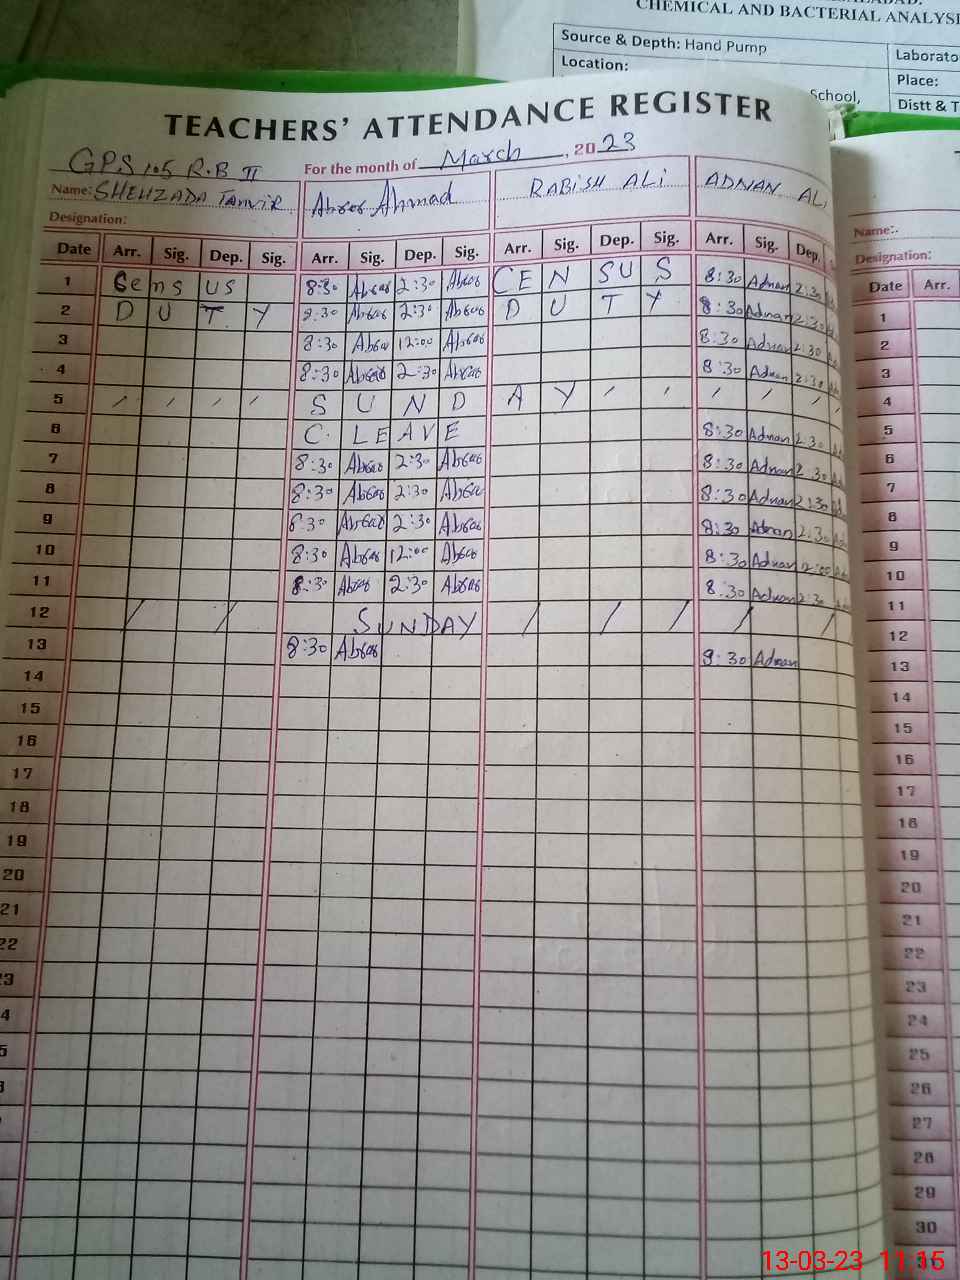 CHEMICAL AND BACTERIAL ANALYSI
Source & Depth: Hand Pump
Laborato
Location:
Place:
School,
Distt & T
TEACHERS' ATTENDANCE REGISTER
GPS 105 R.B II For the month of March, 2023
Name: SHEHZADA Tanvir Ahmad RABISH ALi ADNAN ALi
Designation:
Date Arr. Sig. Dep. Sig. Arr. Sig. Dep. Sig. Arr. Sig. Dep. Sig. Arr. Sig. Dep.
1 Cens us 8:30 2:30 CEN SUS 8:30 Adnan 2:30
2 D U T Y 8:30 2:30 D U T Y 8:30 Adnan 2:30
3 8:30 12:00 8:30 Adnan 2:30
4 8:30 2:30 8:30 Adnan 2:30
5 S U N D A Y
6 C. LEAVE 8:30 Adnan 2:30
7 8:30 2:30 8:30 Adnan 2:30
8 8:30 2:30 8:30 Adnan 2:30
9 8:30 2:30 8:30 Adnan 2:30
10 8:30 12:00 8:30 Adnan 12:00
11 8:30 2:30 8:30 Adnan 2:30
12 SUNDAY
13 8:30 9:30 Adnan
14
15
16
17
18
19
20
21
22
23
4
5
Name:.
Designation:
Date Arr.
1
2
3
4
5
6
7
8
9
10
11
12
13
14
15
16
17
18
19
20
21
22
23
24
25
26
27
28
29
30
13-03-23 11:15